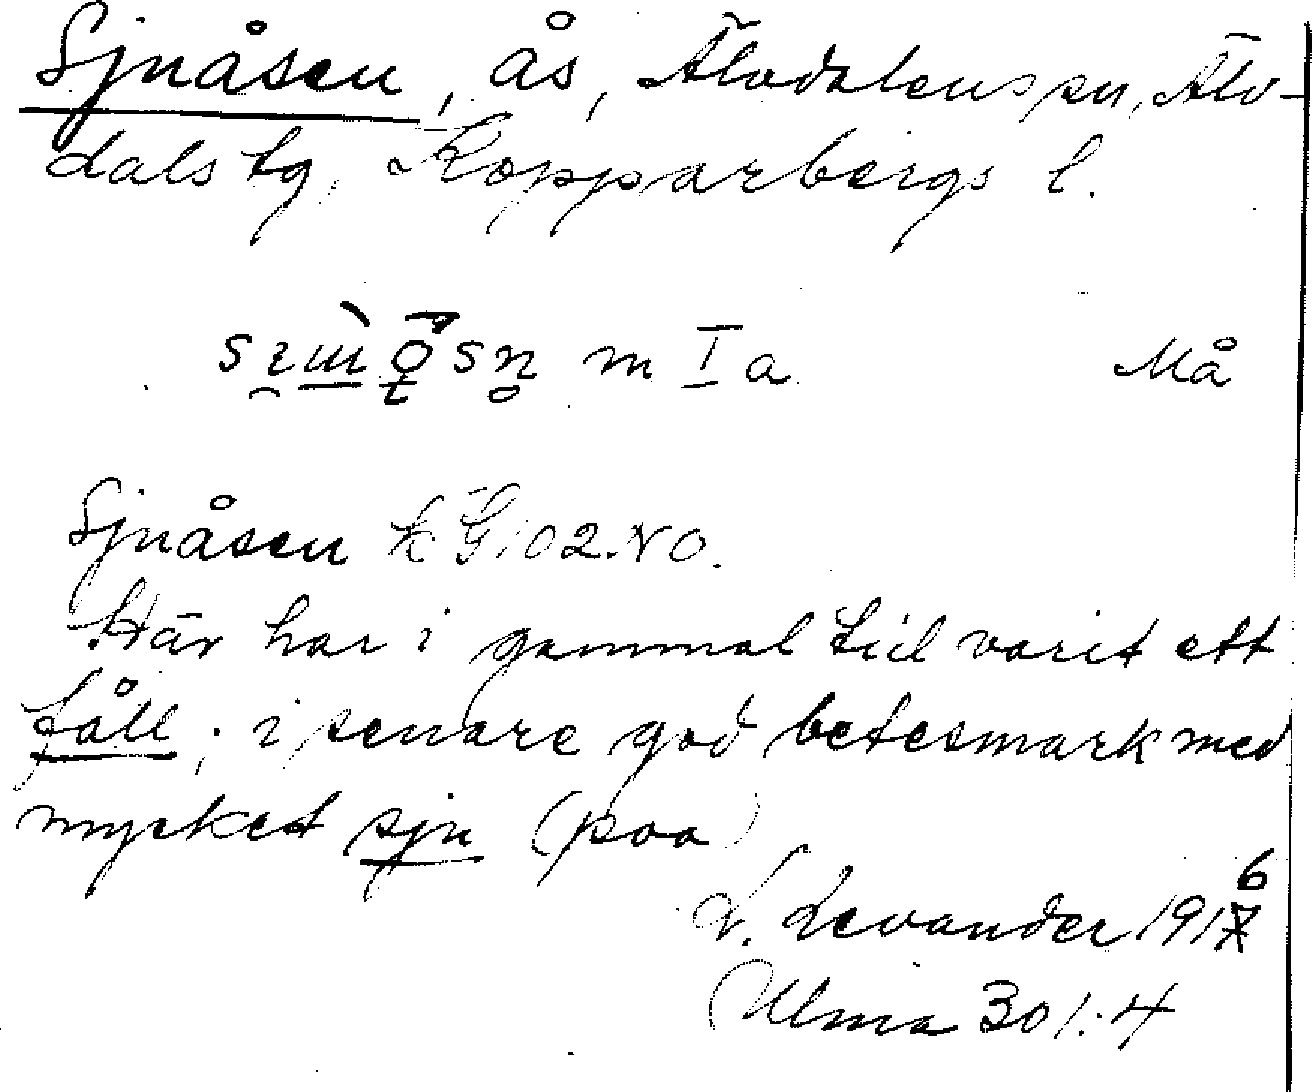 Sjnåsen, ås, Älvdalens sn, Älv-
dals tg, Kopparbergs l.
m I a Må
Sjnåsen k G:102.NO.
Här har i gammal tid varit ett
fåll; i senare god betesmark med
mycket sjn (poa)
L. Levander 1916
Ulma 301:4